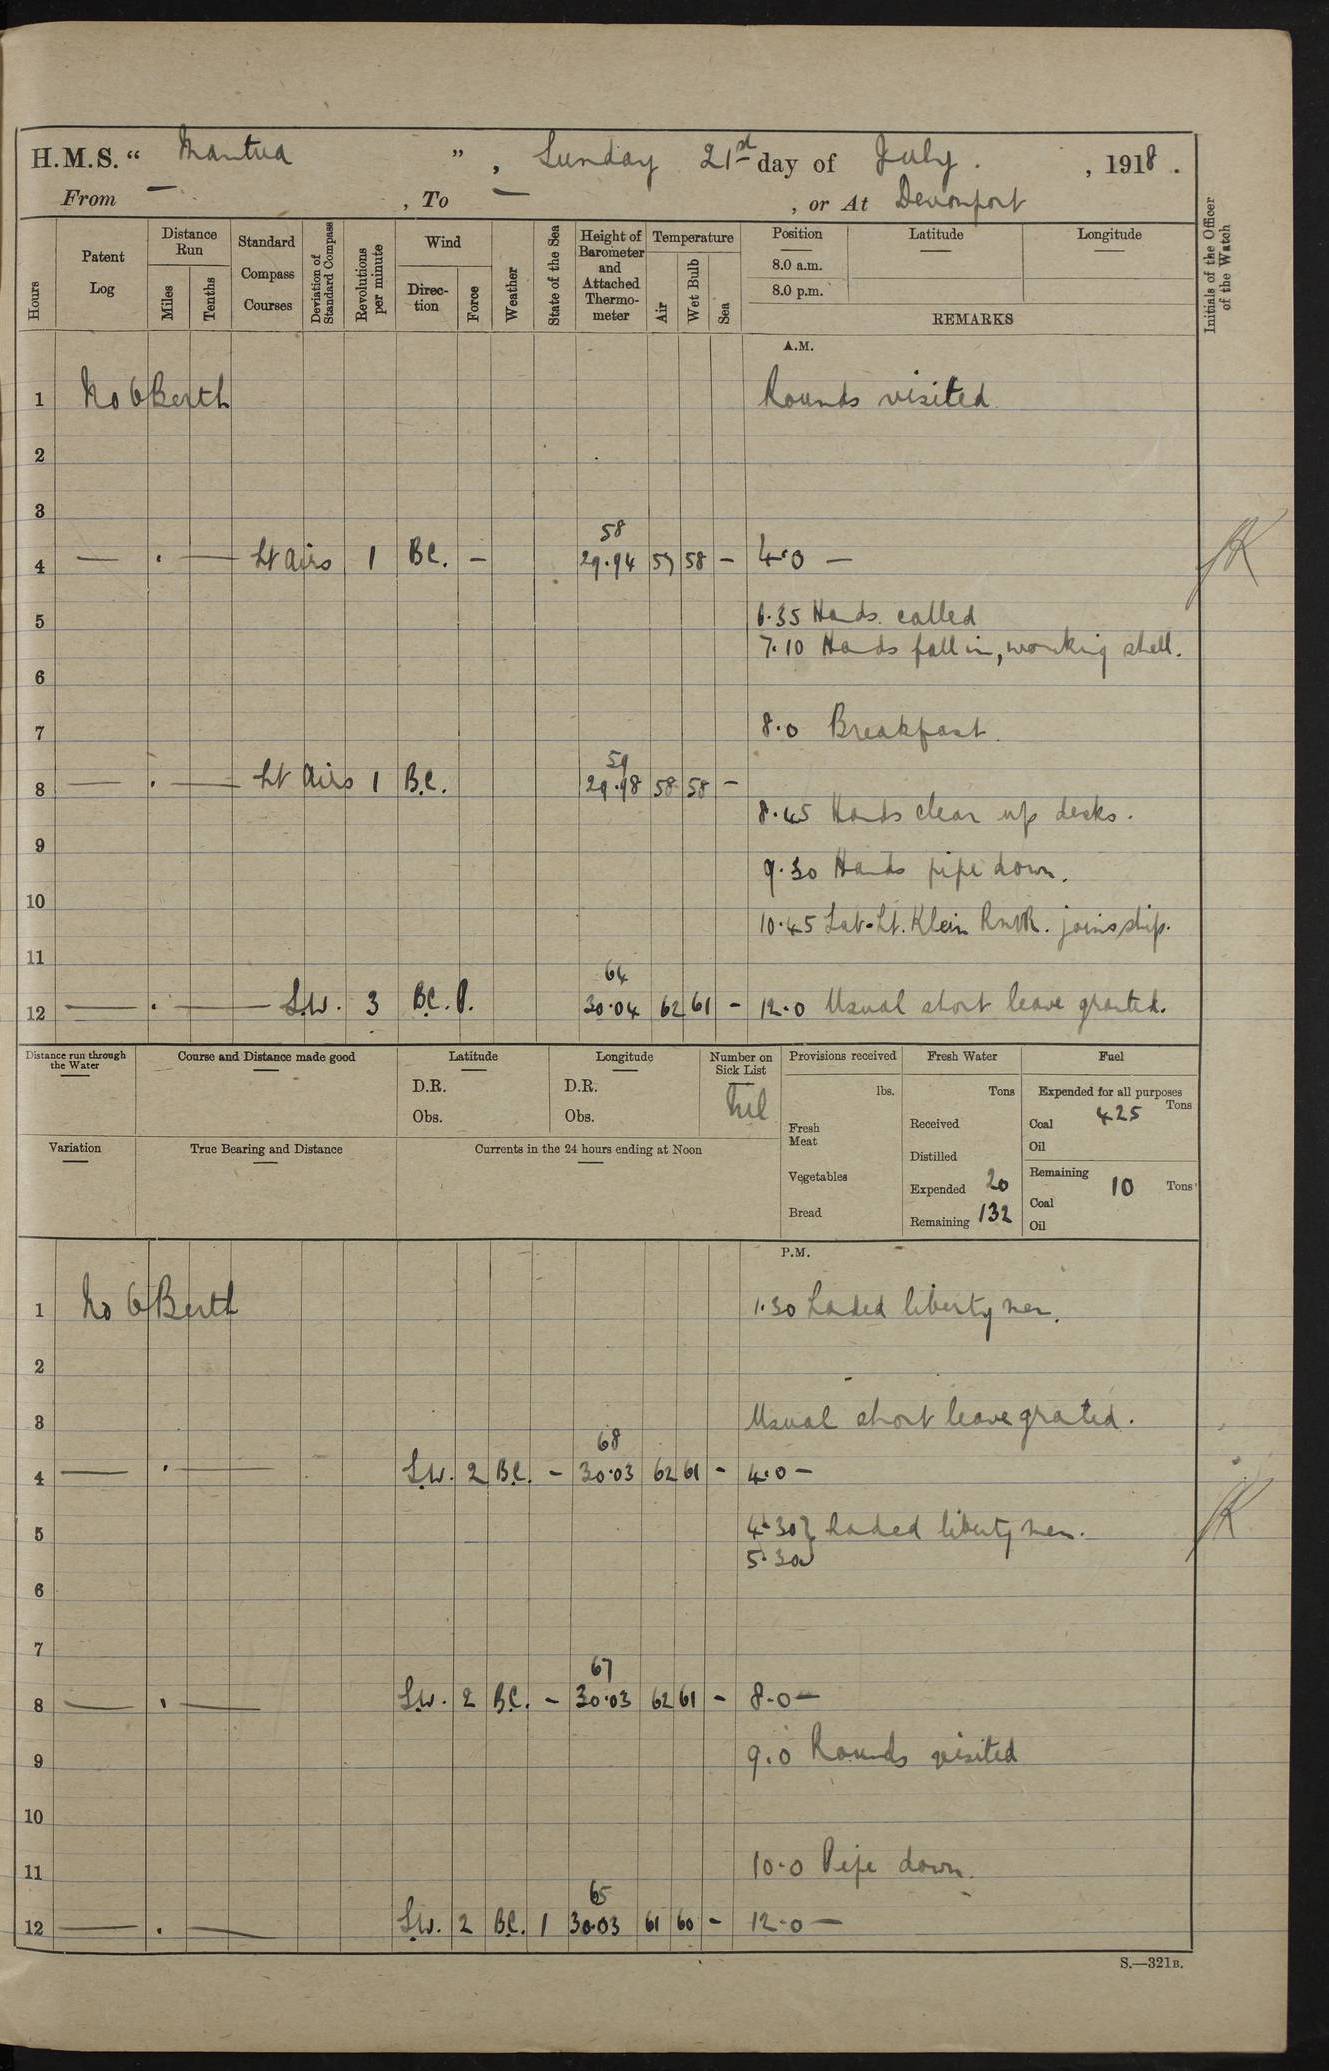 H.M.S. “ Mantua ” , Sunday 21st day of July . , 1918 .
From — , To — , or At Devonport
Hours
Patent Log
Distance Run
Miles
Tenths
Standard Compass Courses
Deviation of Standard Compass
Revolutions per minute
Wind
Direction
Force
Weather
State of the Sea
Height of Barometer and Attached Thermometer
Temperature
Air
Wet Bulb
Sea
Position
8.0 a.m.
8.0 p.m.
Latitude
Longitude
REMARKS
Initials of the Officer of the Watch
A.M.
1 No 6 Berth Rounds visited
2
3
58
4 — . — Lt Airs 1 BC. – 29.94 57 58 – 4.0 —
5 6.35 Hands called
7.10 Hands fall in, working shell.
6
7 8.0 Breakfast.
59
8 — . — Lt Airs 1 B.C. 29.98 58 58 –
8.45 Hands clear up decks.
9
9.30 Hands pipe down.
10
10.45 Sub-Lt. Klein RNVR. joins ship.
11
64
12 — . — S.W. 3 BC. P. 30.04 62 61 – 12.0 Usual short leave granted.
Distance run through the Water
Course and Distance made good
Latitude
D.R.
Obs.
Longitude
D.R.
Obs.
Number on Sick List
Nil
Provisions received
lbs.
Fresh Meat
Vegetables
Bread
Fresh Water
Tons
Received
Distilled
Expended 20
Remaining 132
Fuel
Expended for all purposes
Tons
Coal 425
Oil
Remaining 10 Tons
Coal
Oil
Variation
True Bearing and Distance
Currents in the 24 hours ending at Noon
P.M.
1 No 6 Berth 1.30 Landed liberty men.
2
3 Usual short leave granted.
68
4 — . — S.W. 2 B.C. – 30.03 62 61 – 4.0 –
5 4.30 } Landed liberty men.
5.30
6
7
67
8 — . — S.W. 2 B.C. – 30.03 62 61 – 8.0 —
9 9.0 Rounds visited
10
11 10.0 Pipe down.
65
12 — . — S.W. 2 B.C. 1 30.03 61 60 – 12.0 —
S.—321B.